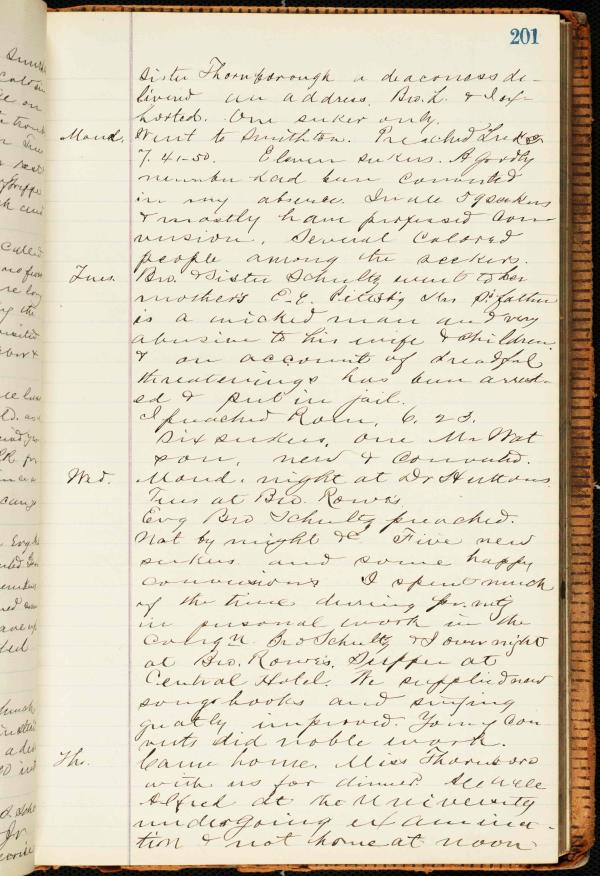 201
Sister Thornborough a deaconess de-
livered an address. Bro. L. & I ex-
horted. One seeker only.
Mond. Went to Smithton. Preached Luke
7. 41-50. Eleven seekers. A goodly
number had been converted
in my absence. In all 59 seekers
& mostly have professed con-
version. Several colored
people among the seekers.
Tues. Bro. & Sister Schultz went to her
mother's C. E. Mrs S's father
is a wicked man and very
abusive to his wife & children
& on account of dreadful
threatenings has been arrest-
ed & put in jail.
I preached Rom. 6. 23.
Six seekers, one Mr Wat
son, new & converted.
Wed. Mond. night at Dr Huttons
Tues at Bro. Rowe's
Evg Bro Schultz preached.
Not by might &c Five new
seekers and some happy
conversions I spent much
of the time during pr. mtg
in personal work in the
congn. Bro Schultz & I over night
at Bro. Rowe's. Supper at
Central Hotel. We supplied new
song books and singing
greatly improved. Young con-
verts did noble work.
Th. Came home. Miss Thornboro
with us for dinner. All well
Alfred at the University
undergoing examina-
tion & not home at noon